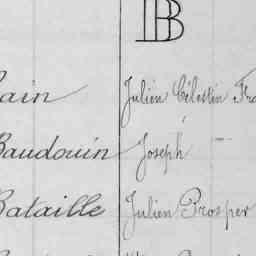 B
ain Julien Célestin Fra
Baudouin Joseph
Bataille Julien Prosper